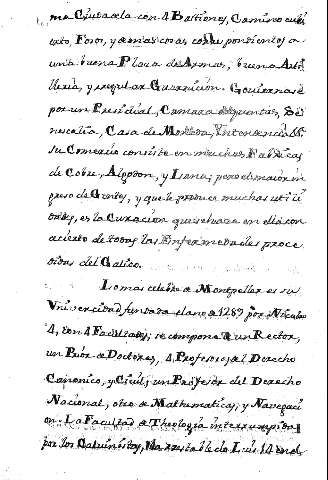 ma Ciudadela con 4 Bastiones, Camino cubi
erto, Fosos, y demas cosas correspondientes a
una buena Plaza de Armas, buena Arti
lleria, y regular Guarnicion. Gobiernase
por un Presidial, Camara de Quentas, Se
nescalia, Casa de Moneda, Yntendencia
su Comercio consiste en muchas Fabricas
de Cobre, Algodon, y Lana; pero el maior in
greso de Gentes, y que le produce muchas utili
dades, es la Curacion que se haze en ella con
acierto de todas las Enfermedades proce
didas del Galico.
Lo mas celebre de Montpeller es su
Vniversidad fundada el ano de 1289 por Nicolao
4, con 4 Facultades; se compone de un Rector,
un Prior de Doctores, 4 Profesores del Derecho
Canonico, y Civil; un Profesor del Derecho
Nacional, otro de Mathematicas, y Navegaci
on. La Facultad de Theologia interrumpida
por los Calvinistas, la restablecio Luis 14 en el